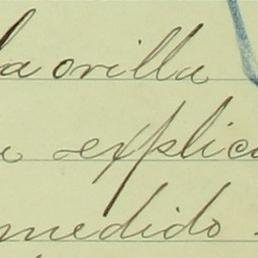 la orilla
e explica
medido